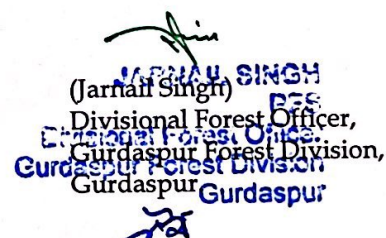 (Jarnail Singh)
Divisional Forest Officer,
Gurdaspur Forest Division,
Gurdaspur
JARNAIL SINGH
PFS
Divisional Forest Officer
Gurdaspur Forest Division
Gurdaspur